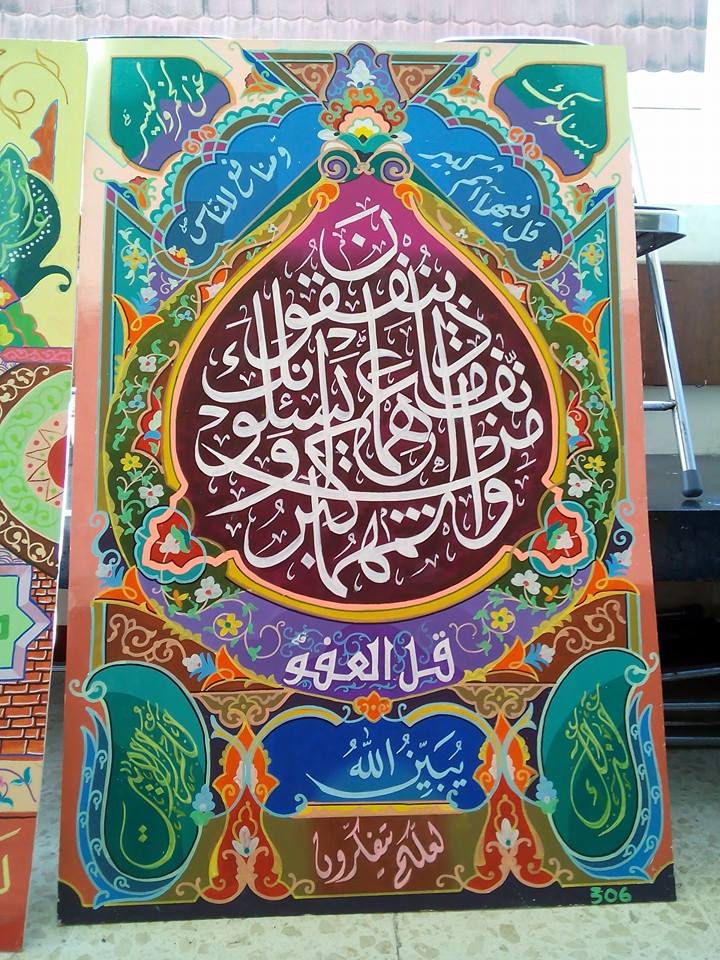 يسئلونك
عن الخمر والميسر
قل فيهما اثم كبير
ومنافع للناس
واثمهما اكبر من نفعهما ويسئلونك ماذا ينفقون
قل العفو
كذلك
يُبَيِّنُ اللهُ
لكم الايات
لعلكم تتفكرون
306